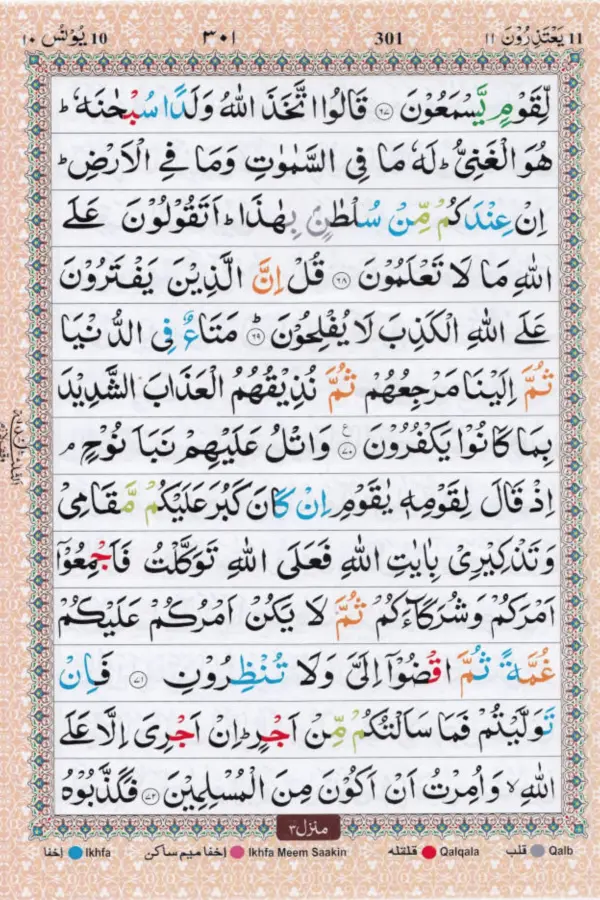 11 يَعْتَذِرُوْنَ ١١ 301 ٣٠١ 10 يُوْنُس ١٠
لِّقَوْمٍ يَّسْمَعُوْنَ ﴿٦٧﴾ قَالُوا اتَّخَذَ اللّٰهُ وَلَدًا سُبْحٰنَهٗ ؕ
هُوَ الْغَنِىُّ ؕ لَهٗ مَا فِى السَّمٰوٰتِ وَمَا فِى الْاَرْضِ ؕ
اِنْ عِنْدَكُمْ مِّنْ سُلْطٰنٍۭ بِهٰذَا ؕ اَتَقُوْلُوْنَ عَلَى
اللّٰهِ مَا لَا تَعْلَمُوْنَ ﴿٦٨﴾ قُلْ اِنَّ الَّذِيْنَ يَفْتَرُوْنَ
عَلَى اللّٰهِ الْكَذِبَ لَا يُفْلِحُوْنَ ؕ ﴿٦٩﴾ مَتَاعٌ فِى الدُّنْيَا
ثُمَّ اِلَيْنَا مَرْجِعُهُمْ ثُمَّ نُذِيْقُهُمُ الْعَذَابَ الشَّدِيْدَ
بِمَا كَانُوْا يَكْفُرُوْنَ ﴿٧٠﴾ ع وَاتْلُ عَلَيْهِمْ نَبَاَ نُوْحٍ ۘ
اِذْ قَالَ لِقَوْمِهٖ يٰقَوْمِ اِنْ كَانَ كَبُرَ عَلَيْكُمْ مَّقَامِىْ
وَتَذْكِيْرِىْ بِاٰيٰتِ اللّٰهِ فَعَلَى اللّٰهِ تَوَكَّلْتُ فَاَجْمِعُوْۤا
اَمْرَكُمْ وَشُرَكَآءَكُمْ ثُمَّ لَا يَكُنْ اَمْرُكُمْ عَلَيْكُمْ
غُمَّةً ثُمَّ اقْضُوْۤا اِلَىَّ وَلَا تُنْظِرُوْنِ ﴿٧١﴾ فَاِنْ
تَوَلَّيْتُمْ فَمَا سَاَلْتُكُمْ مِّنْ اَجْرٍ ؕ اِنْ اَجْرِىَ اِلَّا عَلَى
اللّٰهِ ۙ وَاُمِرْتُ اَنْ اَكُوْنَ مِنَ الْمُسْلِمِيْنَ ﴿٧٢﴾ فَكَذَّبُوْهُ
منزل ٣
Ikhfa اخفا Ikhfa Meem Saakin اخفا ميم ساكن Qalqala قلقله Qalb قلب